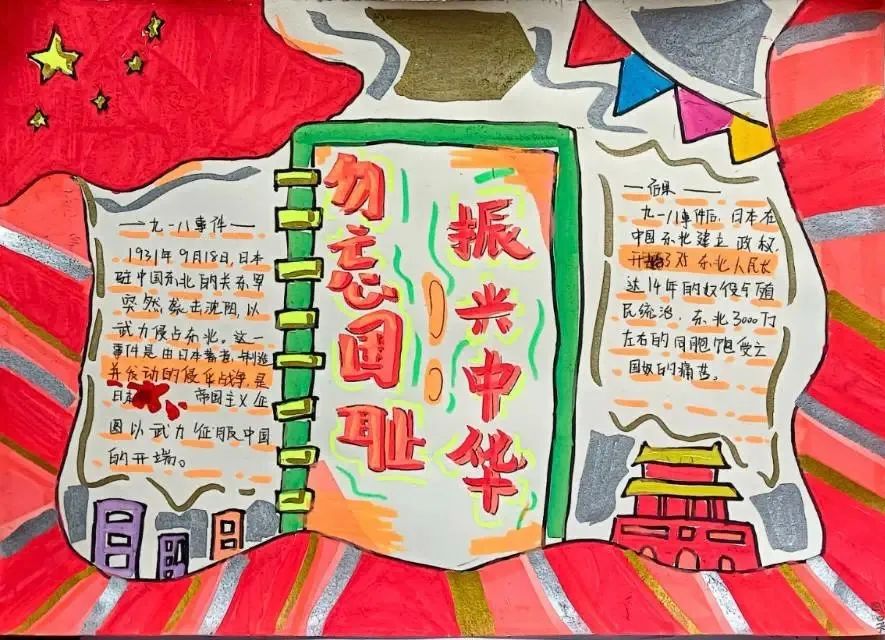 — 九一八事件 —
1931年9月18日,日本
驻中国东北的关东军
突然袭击沈阳,以
武力侵占东北。这一
事件是由日本蓄意制造
并发动的侵华战争,是
日本 帝国主义企
图以武力征服中国
的开端。
勿忘国耻!
振兴中华
— 后果 —
九一八事件后,日本在
中国东北建立政权,
开始了对东北人民长
达14年的奴役与殖
民统治,东北3000万
左右的同胞饱受亡
国奴的痛苦。